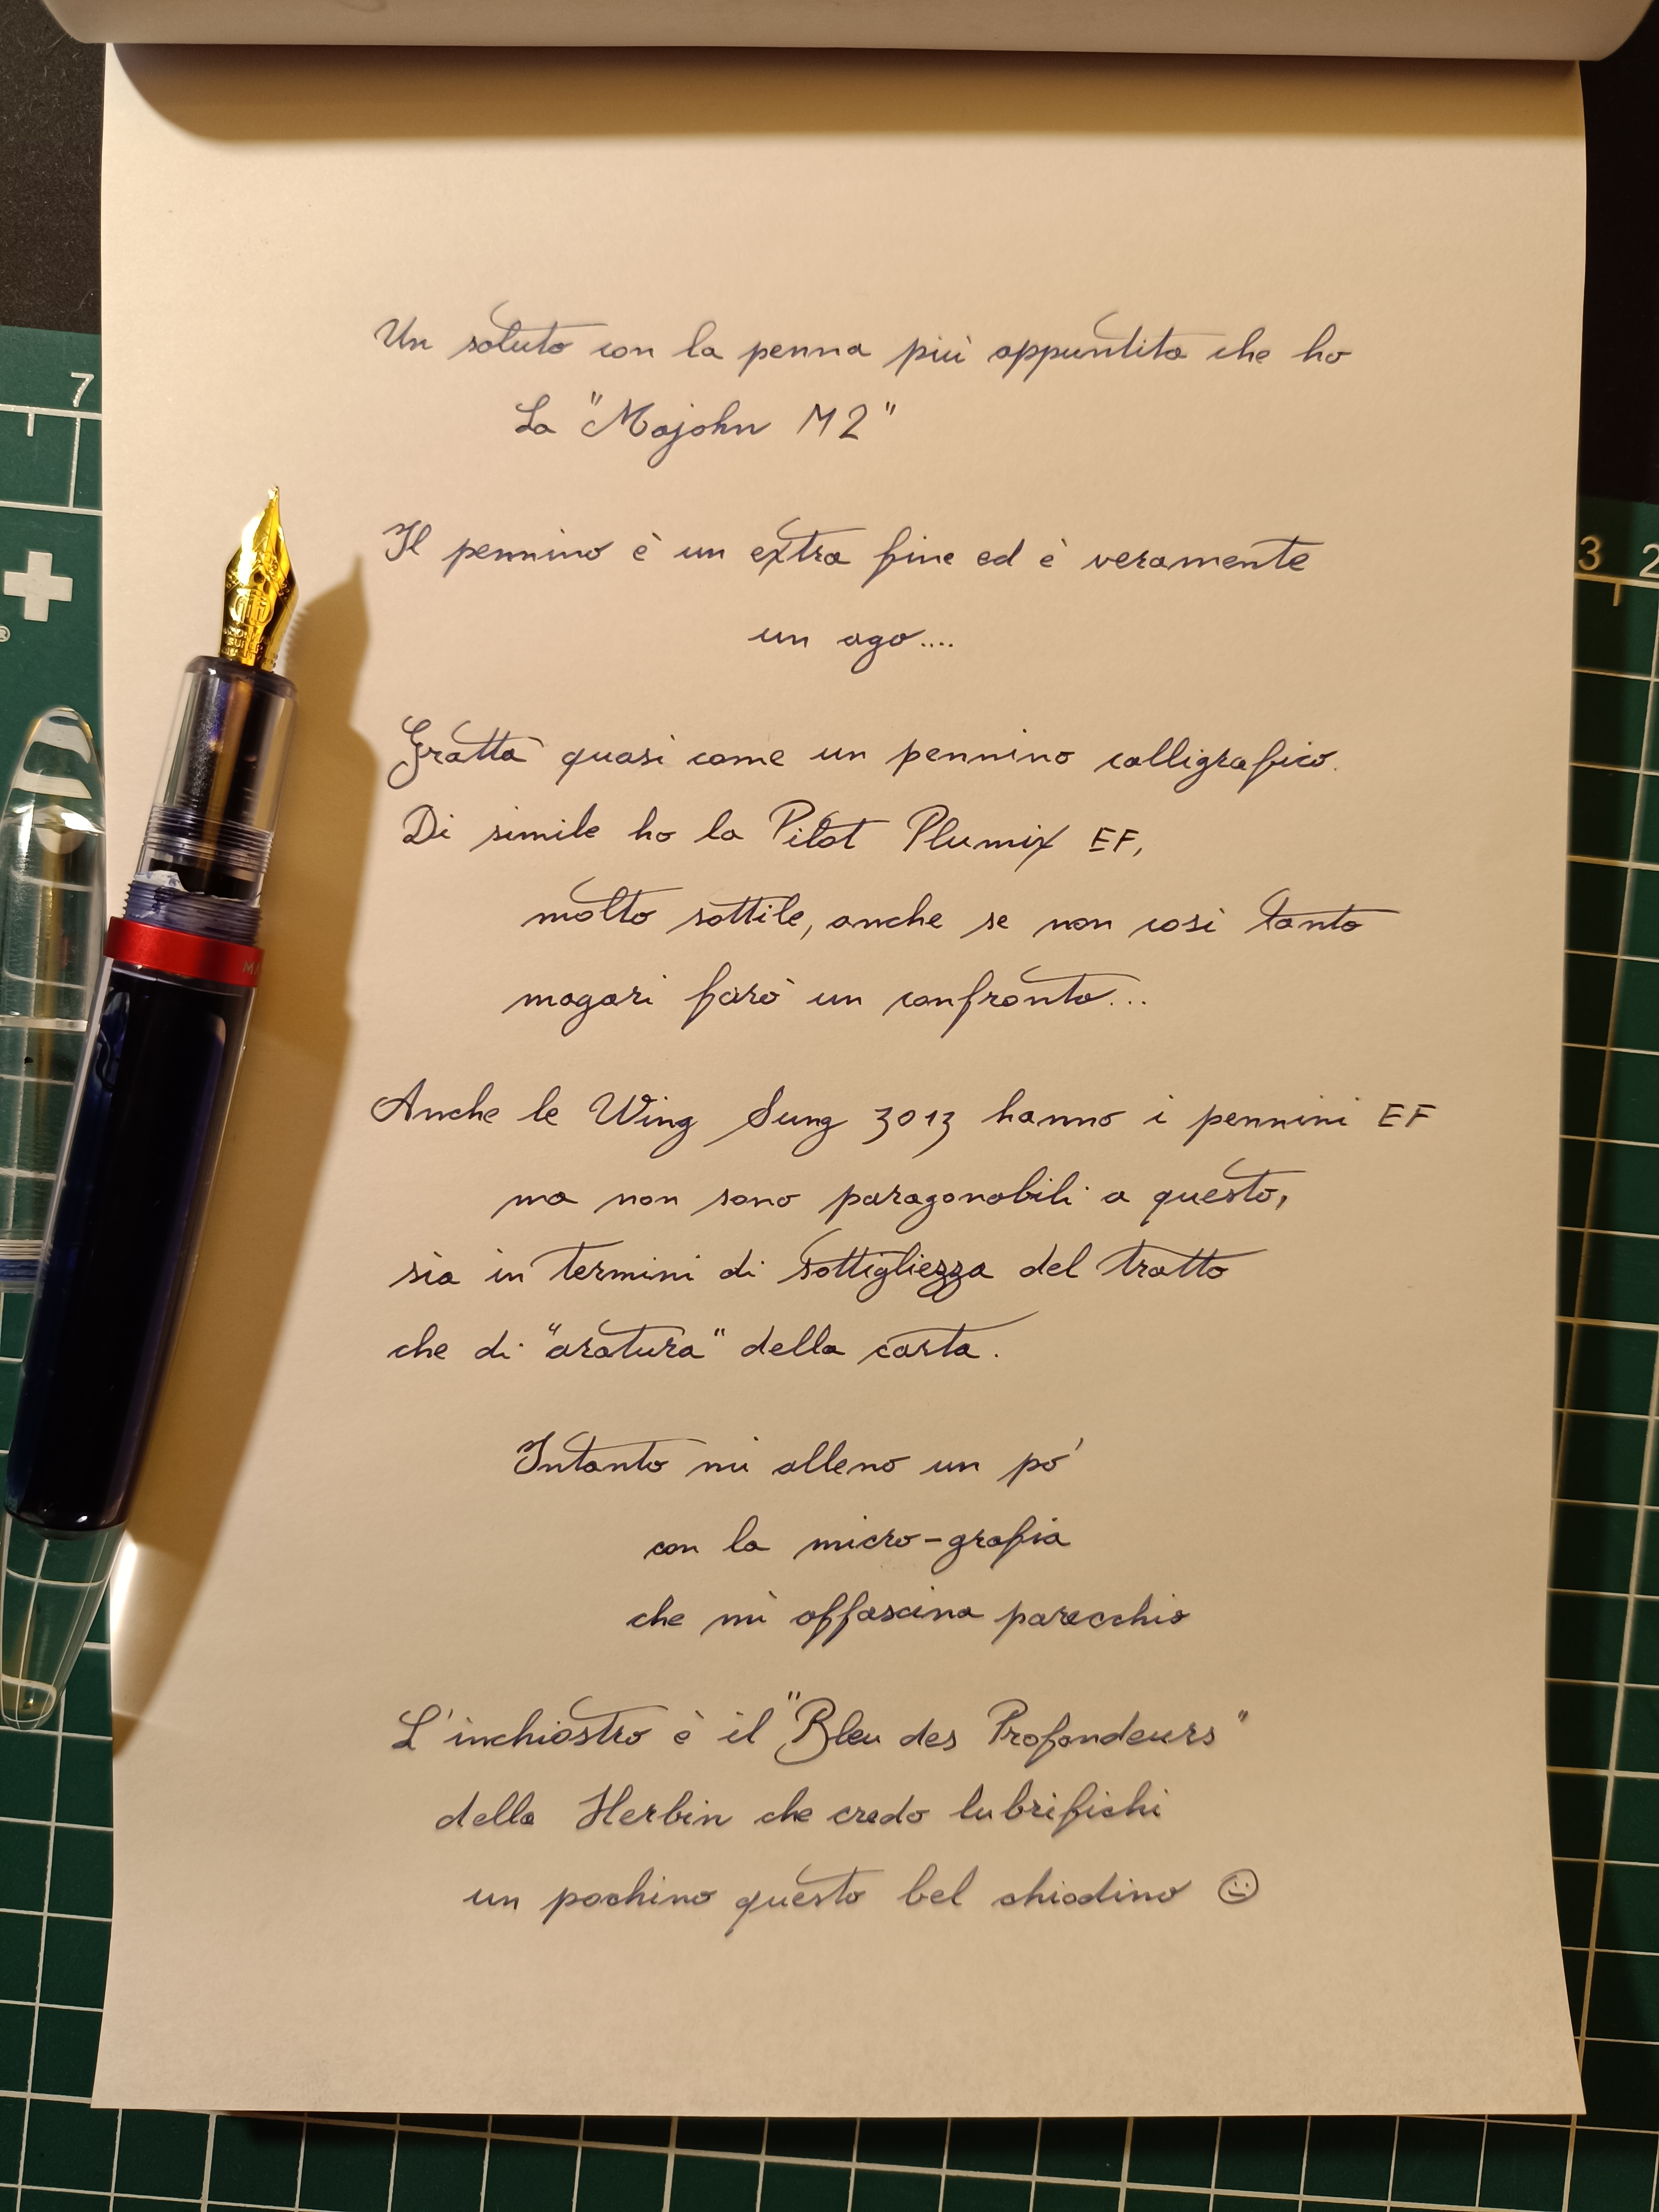 7
3 2
Un saluto con la penna più appuntita che ho
La "Majohn M2"
Il pennino è un extra fine ed è veramente
un ago....
Gratta quasi come un pennino calligrafico.
Di simile ho la Pilot Plumix EF,
molto sottile, anche se non così tanto
magari farò un confronto...
Anche le Wing Sung 3013 hanno i pennini EF
ma non sono paragonabili a questo,
sia in termini di sottigliezza del tratto
che di "aratura" della carta.
Intanto mi alleno un pò
con la micro-grafia
che mi affascina parecchio
L'inchiostro è il "Bleu des Profondeurs"
della Herbin che credo lubrifichi
un pochino questo bel chiodino